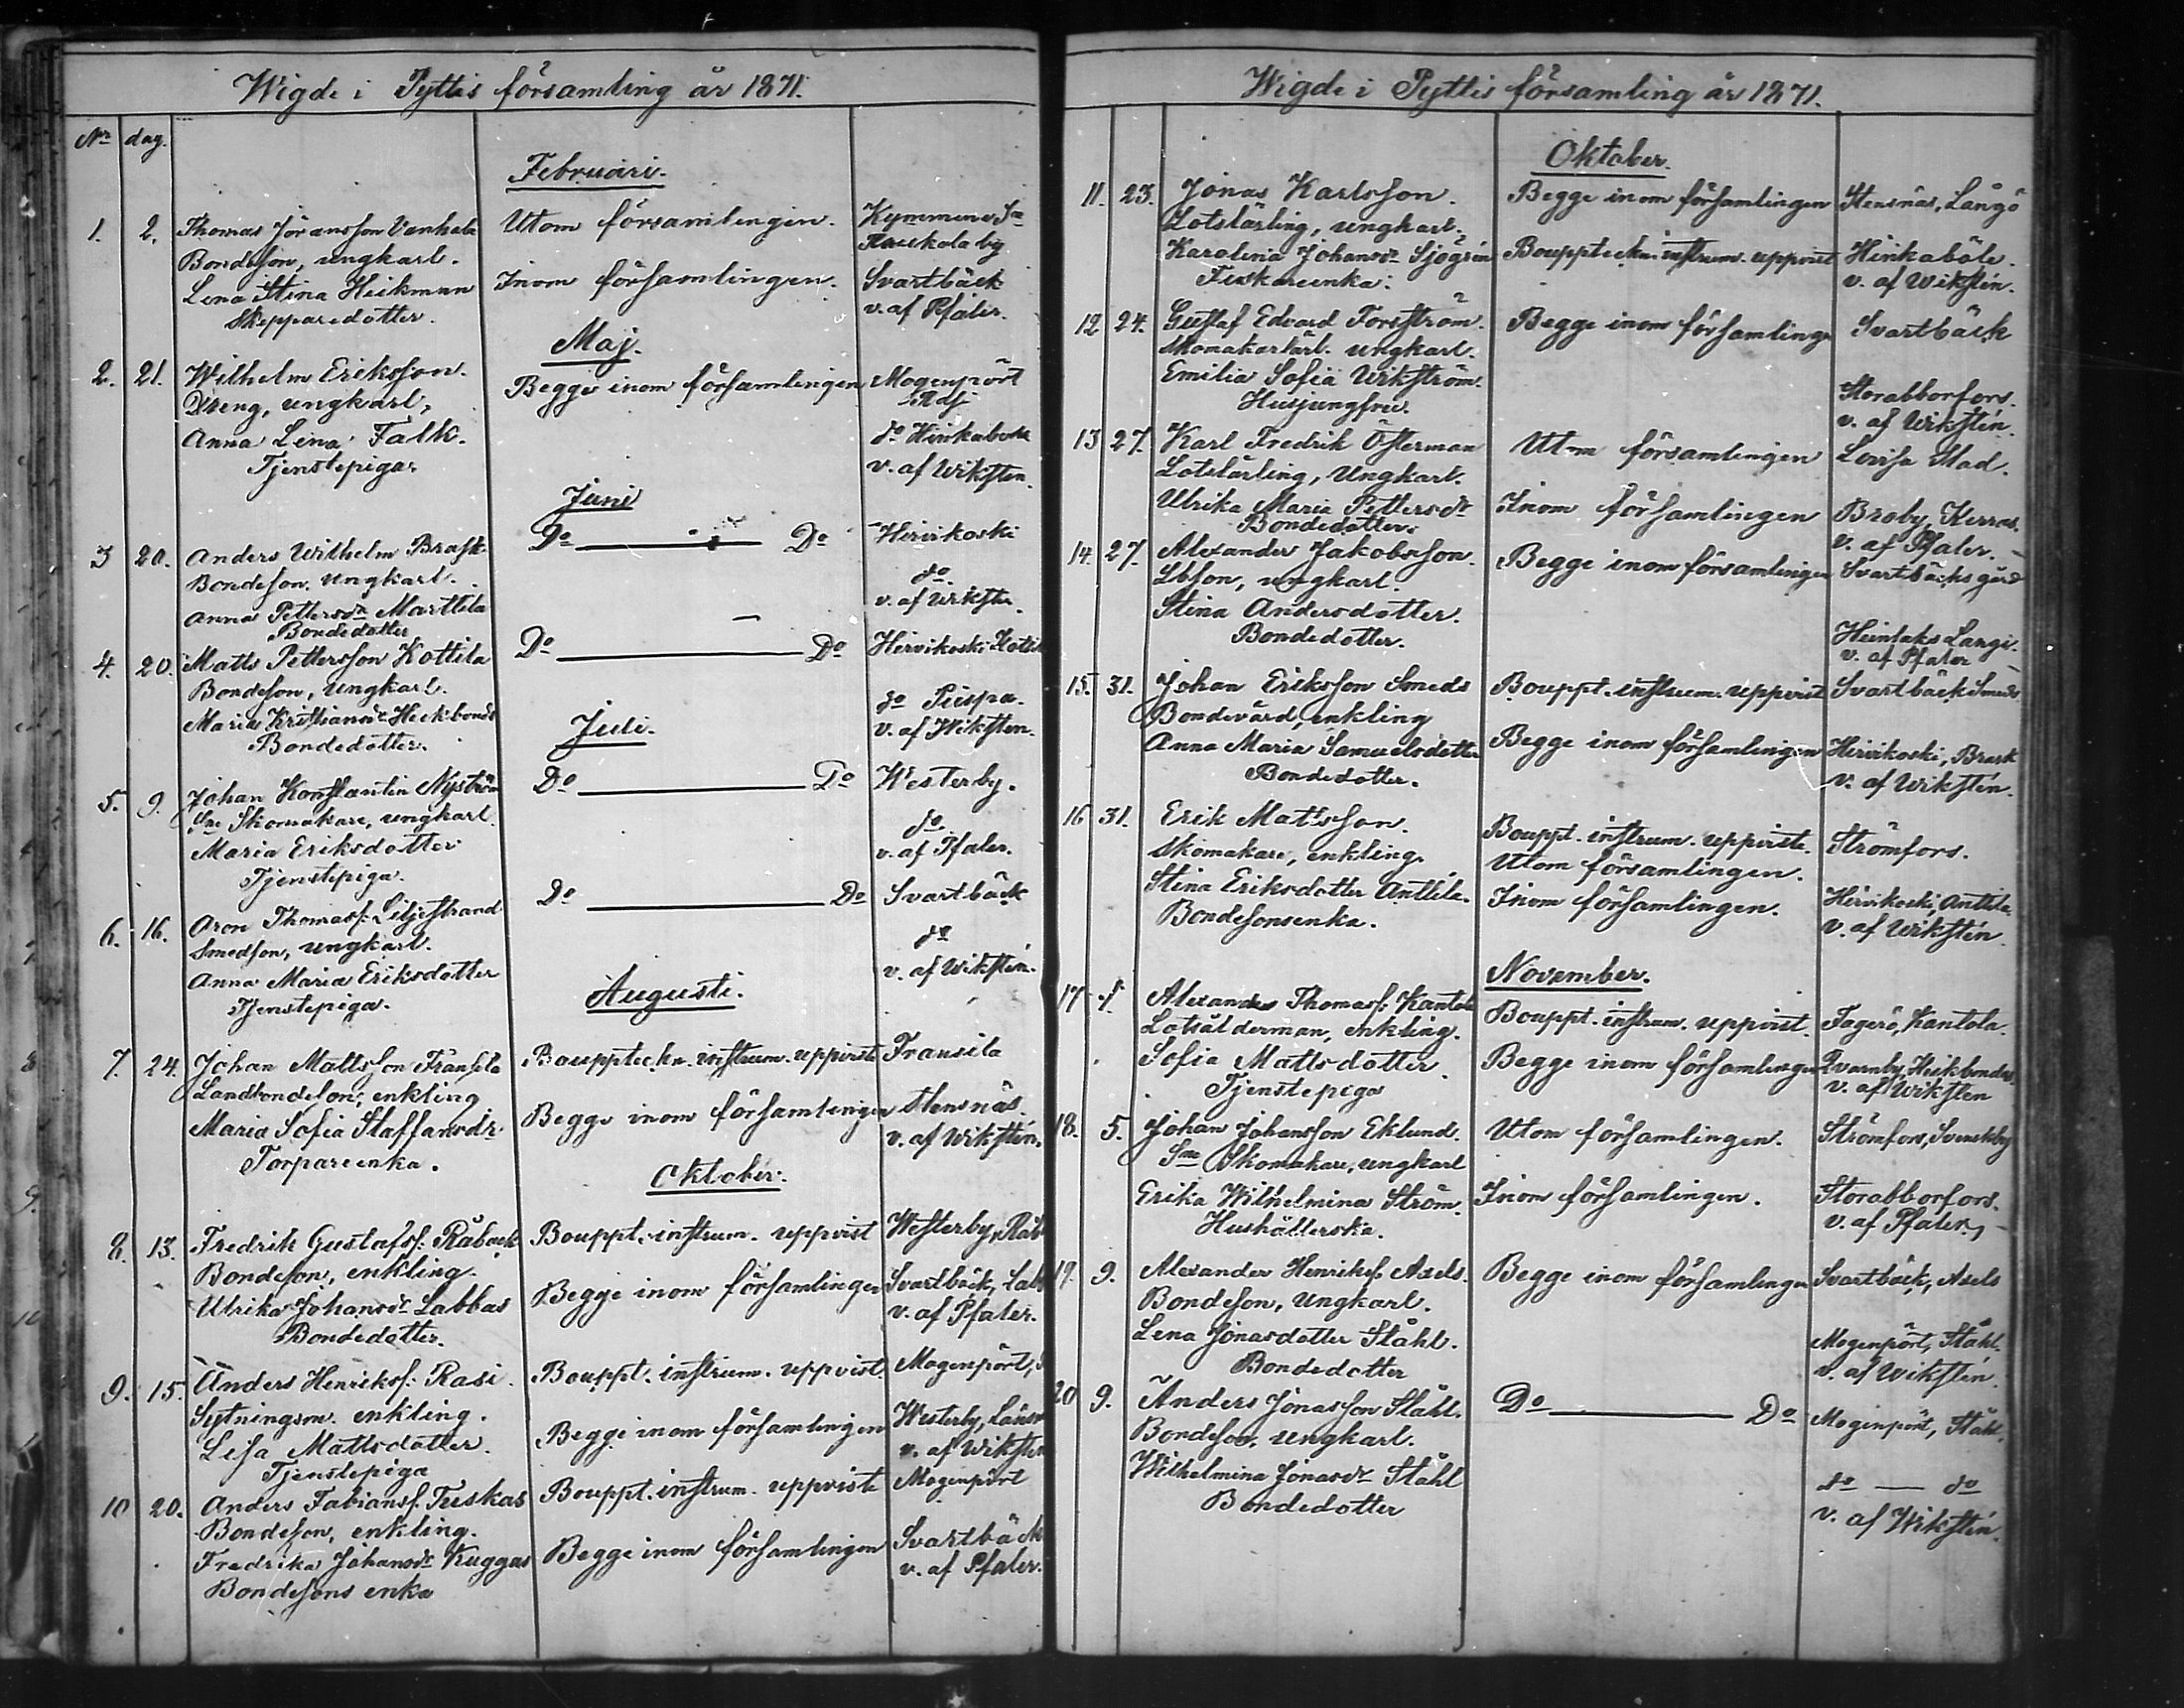 Wigde i Pyttis församling år 1871.
Nr dag.
Februari.
1. 2. Thomas Göransson Vanhala Utom församlingen. Kymmene Sn
Bondeson, ungkarl. by
Lena Stina Heikman Inom församlingen. Svartbäck
Skepparedotter. v. af Pfaler.
Maj.
2. 21. Wilhelm Eriksson. Begge inom församlingen Mogenpört
Dreng, ungkarl,
Anna Lena Falk. do Hinkaböle
Tjenstepiga. v. af Wikstén.
Juni
3 20. Anders Wilhelm Brask Do — Do Hirvikoski
Bondeson, ungkarl. do
Anna Pettersdr Marttila v. af Wikstén.
Bondedotter
4. 20. Matts Pettersson Kottila Do — Do Hirvikoski
Bondeson, ungkarl.
Maria Kristiansdr Heckbonds do Piispa.
Bondedotter. v. af Wikstén.
Juli.
5. 9. Johan Konstantin Nyström Do — Do Westerby.
Sne Skomakare, ungkarl.
Maria Eriksdotter do
Tjenstepiga. v. af Pfaler.
6. 16. Aron Thomass: Liljestrand Do — Do Svartbäck
Smedson, ungkarl.
Anna Maria Eriksdotter do
Tjenstepiga. v. af Wikstén.
Augusti.
7. 24. Johan Mattsson Fransila Boupptekn. instrum. uppviste Fransila
Landbondeson, enkling
Maria Sofia Staffansdr Begge inom församlingen Stensnäs.
Torpareenka. v. af Wikstén.
Oktober.
8. 13. Fredrik Gustafss: Råback Bouppt. instrum. uppvist Westerby,
Bondeson, enkling.
Ulrika Johansdr Labbas Begge inom församlingen Svartbäck,
Bondedotter. v. af Pfaler.
9. 15. Anders Henrikss: Rasi. Bouppt. instrum. uppvist Mogenpört,
Sytningsm. enkling.
Lisa Mattsdotter. Begge inom församlingen Westerby,
Tjenstepiga v. af Wikstén
10 20. Anders Fabianss: Tuskas Bouppt. instrum. uppviste Mogenpört
Bondeson, enkling.
Fredrika Johansdr Kuggas Begge inom församlingen Svartbäck
Bondesons enka v. af Pfaler.
Wigde i Pyttis församling år 1871.
Oktober.
11. 23. Jonas Karlsson. Begge inom församlingen Stensnäs, Långö
Lotslärling, ungkarl.
Karolina Johansdr Sjögrén Boupptekn. instrum. uppvist Hinkaböle.
Fiskareenka. v. af Wikstén.
12 24. Gustaf Edvard Forsström. Begge inom församlingen Svartbäck
Skomakarlärl. ungkarl.
Emilia Sofia Wikström. Storabborfors.
Husjungfru. v. af Wikstén.
13 27. Karl Fredrik Österman Utom församlingen Lovisa Stad.
Lotslärling, Ungkarl.
Ulrika Maria Pettersdr Inom församlingen Broby, Kerras.
Bondedotter. v. af Pfaler.
14. 27. Alexander Jakobsson. Begge inom församlingen Svartbäcks gård
Lbson, ungkarl.
Stina Andersdotter. Heinlaks Langi.
Bondedotter. v. af Pfaler
15. 31. Johan Eriksson Smeds Bouppt. instrum. uppvist Svartbäck Smeds
Bondevärd, enkling
Anna Maria Samuelsdotter Begge inom församlingen Hirvikoski, Brask
Bondedotter. v. af Wikstén.
16 31. Erik Mattsson. Bouppt. instrum. uppviste. Strömfors.
Skomakare, enkling. Utom församlingen.
Stina Eriksdotter Anttila. Inom församlingen. Hirvikoski, Anttila.
Bondesonsenka. v. af Wikstén.
November.
17 1. Alexander Thomass: Kantola Bouppt. instrum. uppvist. Fagerö, Kantola.
Lotsålderman, enkling.
Sofia Mattsdotter. Begge inom församlingen Qvarnby, Heckbonds.
Tjenstepiga v. af Wikstén
18. 5. Johan Johansson Eklund. Utom församlingen. Strömfors, Svenskby
Sne Skomakare, ungkarl
Erika Wilhelmina Ström. Inom församlingen. Storabborfors.
Hushållerska. v. af Pfaler.
19. 9. Alexander Henrikss: Axels. Begge inom församlingen Svartbäck, Axels
Bondeson, Ungkarl.
Lena Jonasdotter Ståhl. Mogenpört, Ståhl.
Bondedotter v. af Wikstén.
20 9. Anders Jonasson Ståhl. Do — Do Mogenpört, Ståhl.
Bondeson, ungkarl.
Wilhelmina Jonasdr Ståhl do — do
Bondedotter v. af Wikstén.